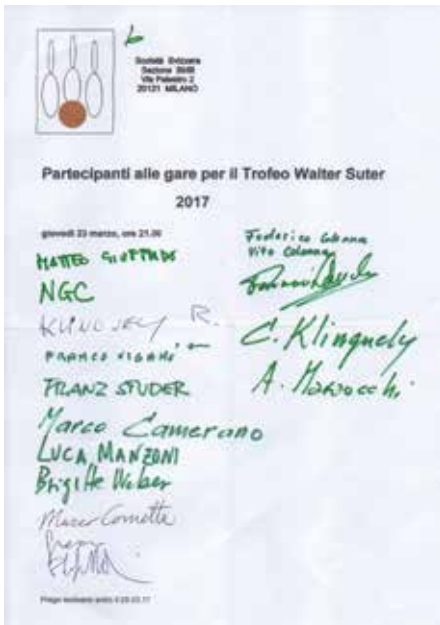 Società Svizzera
Sezione
Via Palestro 2
20121 MILANO
Partecipanti alle gare per il Trofeo Walter Suter
2017
giovedì 23 marzo, ore 21.00
MATTEO
NGC
R.
FRANCO VIGANÒ
FRANZ STUDER
Marco Camerano
LUCA MANZONI
Brigitte Weber
Marco Cometta
Federico Colonna
Vito Colonna
C. Klinguely
A.
Prego iscriversi entro il